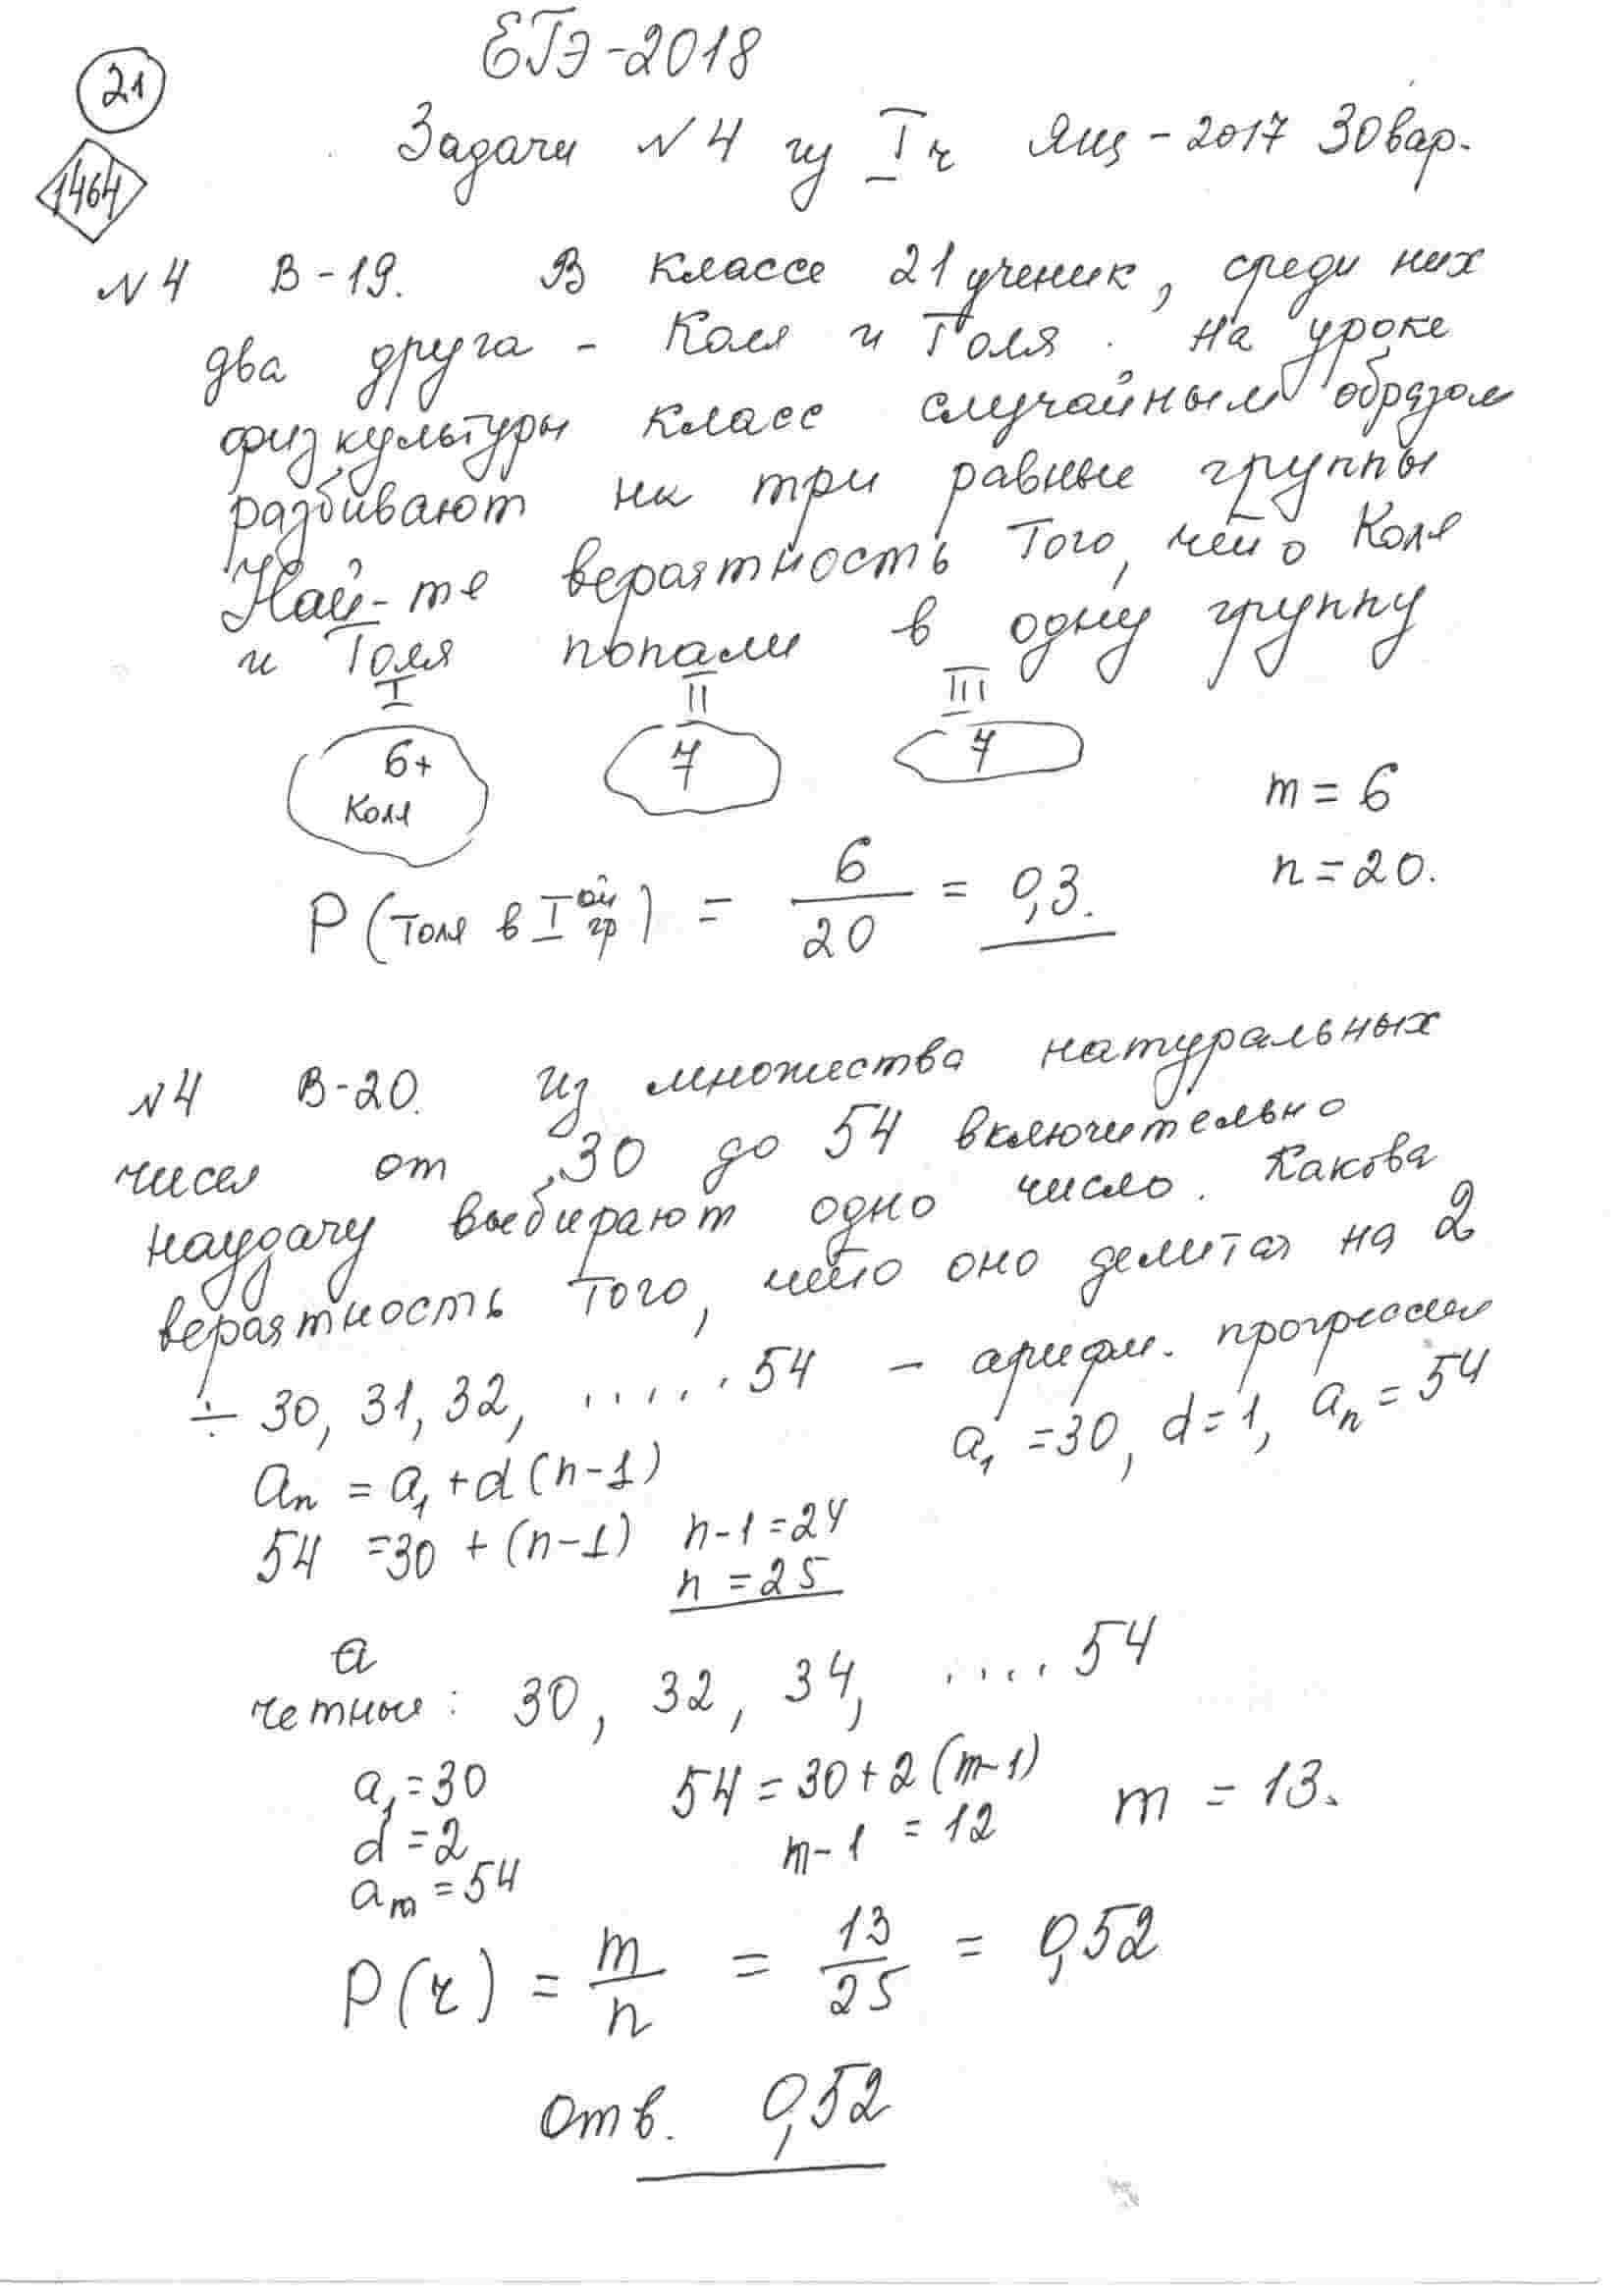 ЕГЭ-2018
21
Задачи №4 из I ч Ящ-2017 30вар.
1464
№4 В-19. В классе 21 ученик, среди них
два друга - Коля и Толя. На уроке
физкультуры класс случайным образом
разбивают на три равные группы
Най-те вероятность того, что Коля
и Толя попали в одну группу
I II III
6+ 7 7
Коля
m = 6
n = 20.
P(Толя в I ой гр) = 6/20 = 0,3.
№4 В-20. Из множества натуральных
чисел от 30 до 54 включительно
наудачу выбирают одно число. Какова
вероятность того, что оно делится на 2
÷ 30, 31, 32, ...... 54 - арифм. прогрессия
a₁ = 30, d = 1, aₙ = 54
aₙ = a₁ + d(n-1)
54 = 30 + (n-1) n-1 = 24
n = 25
а
четные: 30, 32, 34, .... 54
a₁ = 30 54 = 30 + 2(m-1) m = 13.
d = 2 m-1 = 12
aₘ = 54
P(ч) = m/n = 13/25 = 0,52
Отв. 0,52